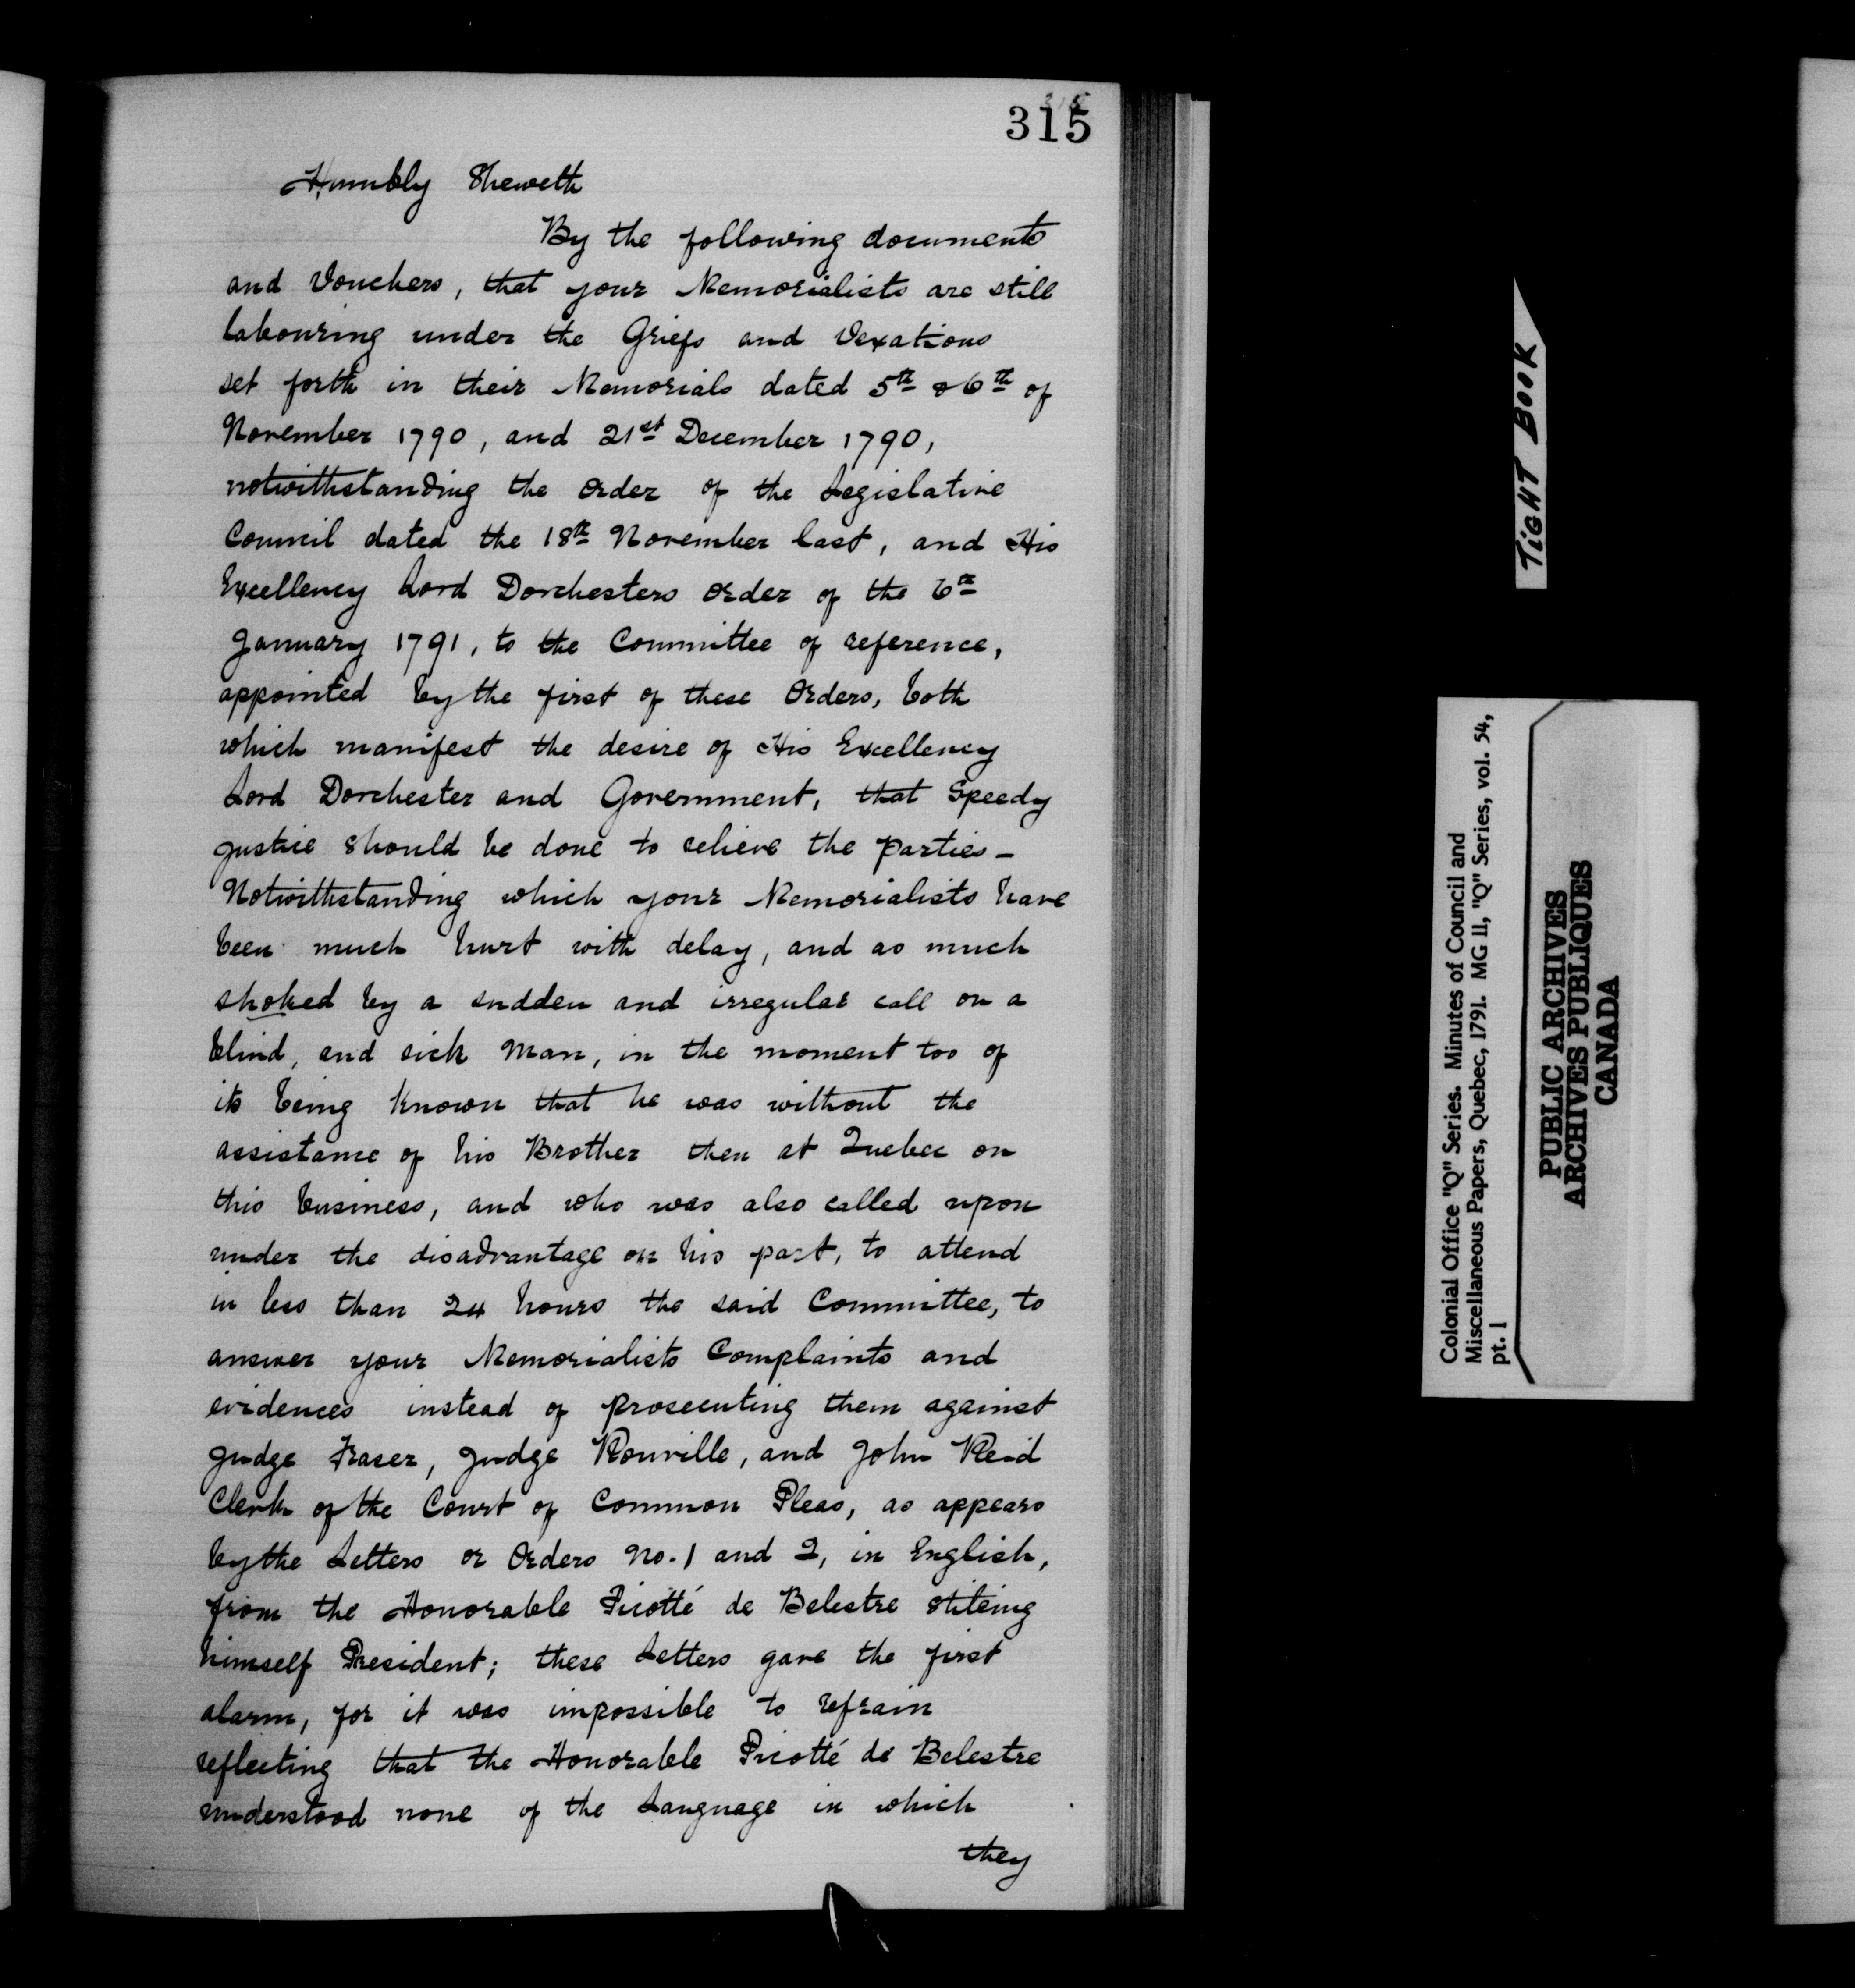 315
Humbly Sheweth
By the following documents
and Vouchers, that your Memorialists are still
labouring under the Griefs and Vexations
set forth in their Memorials dated 5th & 6th of
November 1790, and 21st December 1790,
notwithstanding the Order of the Legislative
Council dated the 18th November last, and His
Excellency Lord Dorchesters Order of the 6th
January 1791, to the Committee of reference,
appointed by the first of these Orders, both
which manifest the desire of His Excellency
Lord Dorchester and Government, that Speedy
justice should be done to relieve the parties -
Notwithstanding which your Memorialists have
been much hurt with delay, and as much
shoked by a sudden and irregular call on a
blind, and sick Man, in the moment too of
its being known that he was without the
assistance of his Brother then at Quebec on
this business, and who was also called upon
under the disadvantage on his part, to attend
in less than 24 hours the said Committee, to
answer your Memorialists Complaints and
evidences instead of prosecuting them against
Judge Fraser, Judge Rouville, and John Reid
Clerk of the Court of Common Pleas, as appears
by the Letters or Orders No. 1 and 2, in English,
from the Honorable Picotté de Belestre stileing
himself President; these Letters gave the first
alarm, for it was impossible to refrain
reflecting that the Honorable Picotté de Belestre
understood none of the Language in which
they
TIGHT BOOK
Colonial Office "Q" Series. Minutes of Council and
Miscellaneous Papers, Quebec, 1791. MG 11, "Q" Series, vol. 54,
pt. 1
PUBLIC ARCHIVES
ARCHIVES PUBLIQUES
CANADA